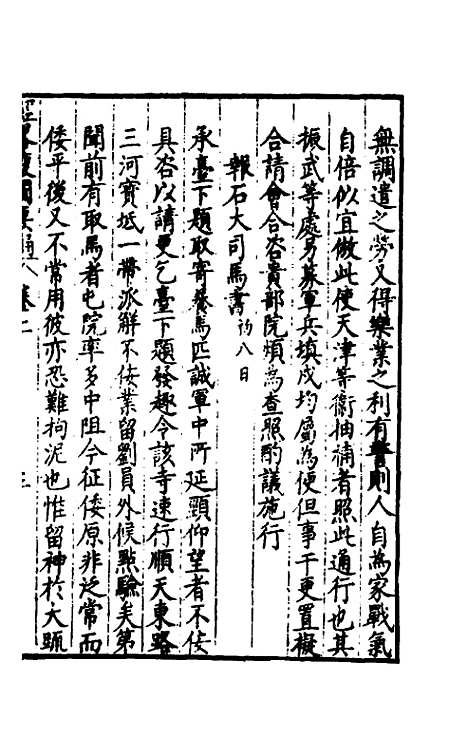 無調遣之勞又得樂業之利有警則人自為家戰氣
自倍似宜倣此使天津等衛抽補者照此通行也其
振武等處另募軍兵填戍均屬為便但事干更置擬
合請會合咨貴部院煩為查照酌議施行
報石大司馬書 初八日
承臺下題取寄養馬匹誠軍中所延頸仰望者不佞
具咨以請更乞臺下題發趣令該寺速行順天東路
三河寶坻一帶派解不佞業留劉員外候點驗矣第
聞前有取馬者屯院率多中阻今征倭原非泛常而
倭平後又不常用彼亦恐難拘泥也惟留神於大疏
經畧復國要編 卷二 三